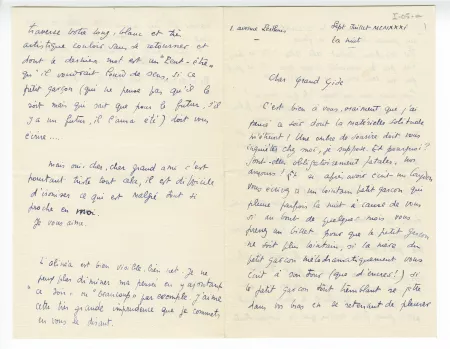 1. avenue
Sept Juillet MCMXXXI
La nuit
Cher Grand Gide
C'est bien à vous, vraiment que j'ai
pensé ce soir dont la matérielle solitude
m'étreint! Une ombre de sourire doit vous
inquiéter chez moi, je suppose. Et pourquoi?
Sont-elles obligatoirement fatales, nos
amours! Et si après avoir
vous écrivez à un lointain petit garçon qui
pleure parfois la nuit à cause de vous
si au bout de quelques mois vous
prenez un billet pour que le petit garçon
ne soit plus lointain, si la mère du
petit garçon mélodramatiquement vous
écrit à son tour (que d'encre!) si
le petit garçon tout tremblant se jette
dans vos bras en se retenant de pleurer
traverse votre long, blanc et très
artistique couloir sans se retourner et
dont le dernier mot est un "Peut-être"
qu'il voudrait lourd de sens, si ce
petit garçon (qui ne pense pas qu'il le
soit mais qui sait que pour le futur, s'il
y a un futur, il l'aura été) doit vous
écrire....
mais oui, cher, cher grand ami c'est
pourtant triste tout cela, il est difficile
d'ironiser ce qui est malgré tout si
proche en moi.
Je vous aime.
L'olivier est bien visible, bien net. Je ne
peux plus diminuer ma pensée en y ajoutant
"ce soir" ou "beaucoup" par exemple, j'aime
cette très grande imprudence que je commets
en vous le disant.